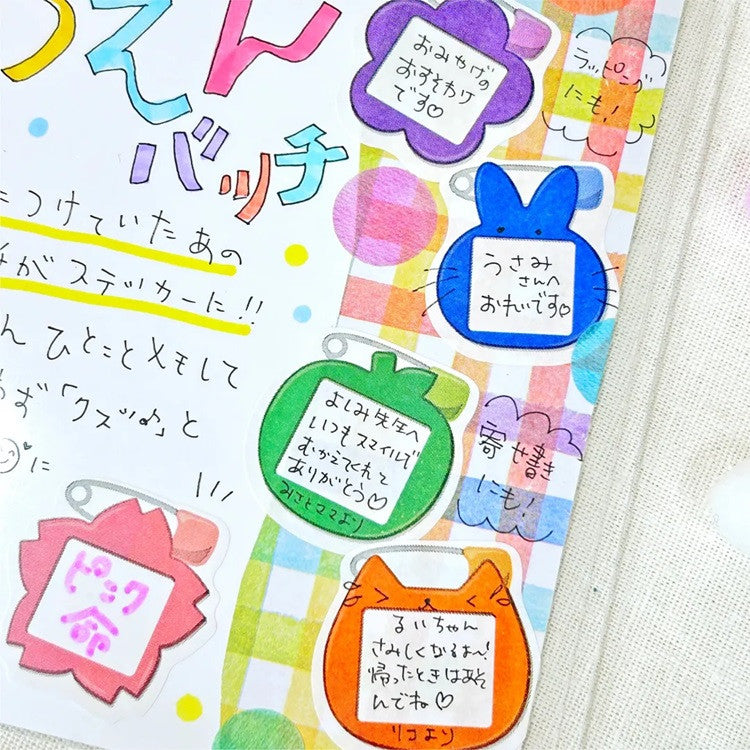 うえん
バッチ
につけていたあの
がステッカーに!!
ひとことメモして
「クスッ♪」と
に
おみやげの
おすそわけ
です♡
ラッピング
にも!
うさみ
さんへ
おれいです♡
よしみ先生へ
いつもスマイルで
むかえてくれて
ありがとう♡
みさとママより
寄せ書き
にも!
ピンク
命
るいちゃん
さみしくなるよー!
帰ったときはあそ
んでね♡
リコより